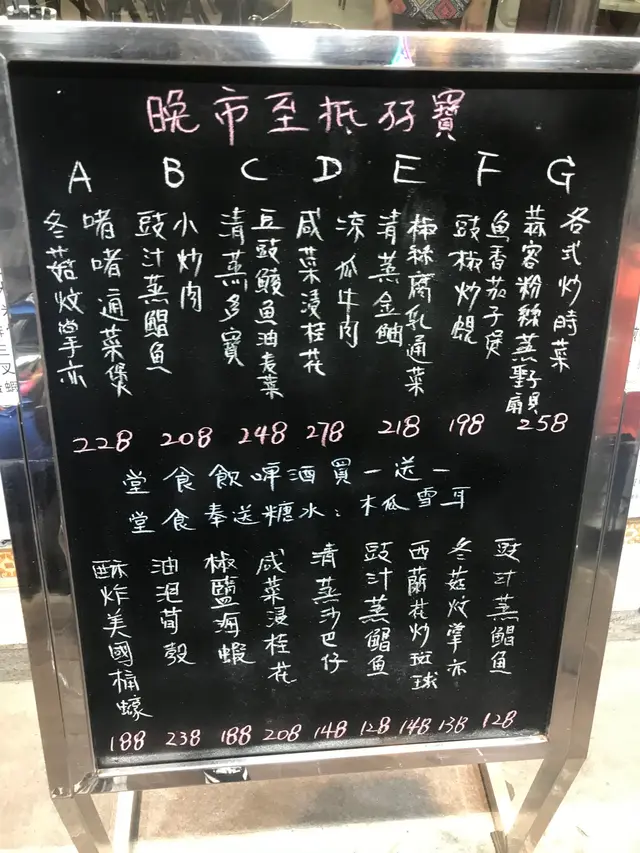 晚市至抵孖寶
A B C D E F G
冬菇炆掌亦
啫啫通菜煲
豉汁蒸鯧魚
小炒肉
清蒸多寶
豆豉鯪魚油麦菜
咸菜浸桂花
凉瓜牛肉
清蒸金鯧
椒絲腐乳通菜
豉椒炒蜆
魚香茄子煲
蒜容粉絲蒸
各式炒時菜
228 208 248 278 218 198 258
堂食飲啤酒買一送一
堂食奉送糖水：木瓜雪耳
酥炸美國桶蠔
油泡荀殼
椒鹽海蝦
咸菜浸桂花
清蒸沙巴仔
豉汁蒸鯧魚
西蘭花炒斑球
冬菇炆掌亦
豉汁蒸鯧魚
188 238 188 208 148 128 148 138 128